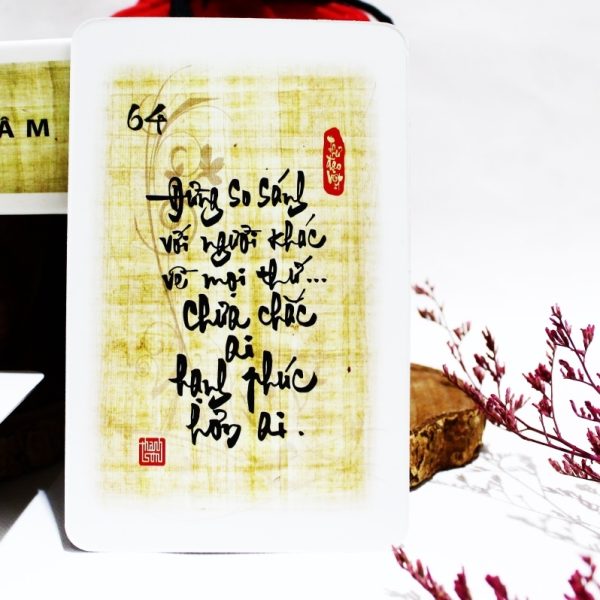 ÂM
64
Đừng so sánh
với người khác
về mọi thứ...
chưa chắc
ai
hạnh phúc
hơn ai.
thanh
sơn